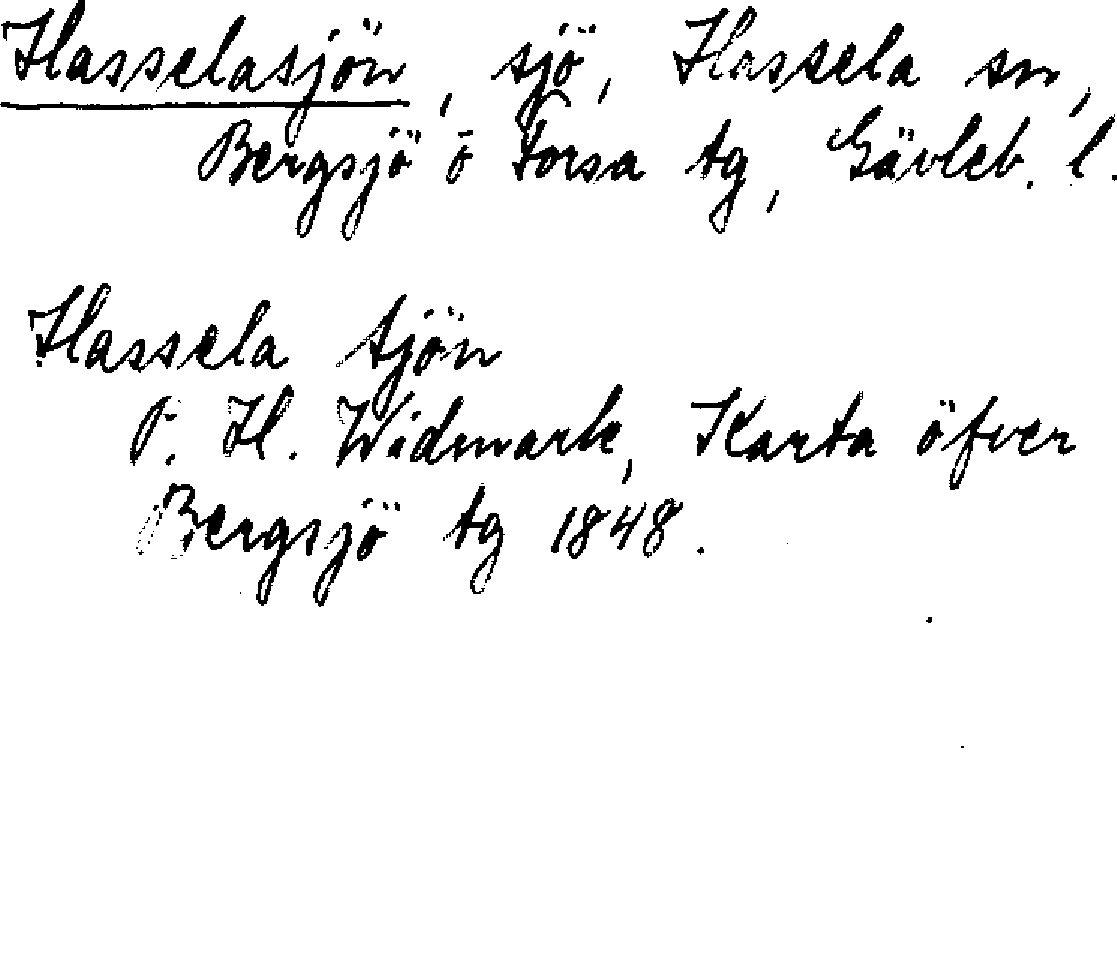 Hasselasjön, sjö, Hassela sn,
Bergsjö o Forsa tg, Gävleb. l.
Hassela sjön
P. H. Widmark, Karta öfver
Bergsjö tg 1848.